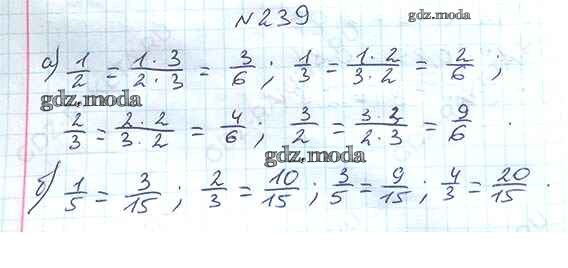 №239
gdz.moda
а) 1/2 = 1·3/2·3 = 3/6 ; 1/3 = 1·2/3·2 = 2/6 ;
gdz.moda
2/3 = 2·2/3·2 = 4/6 ; 3/2 = 3·2/2·3 = 9/6 .
gdz.moda
б) 1/5 = 3/15 ; 2/3 = 10/15 ; 3/5 = 9/15 ; 4/3 = 20/15 .
gdz.moda